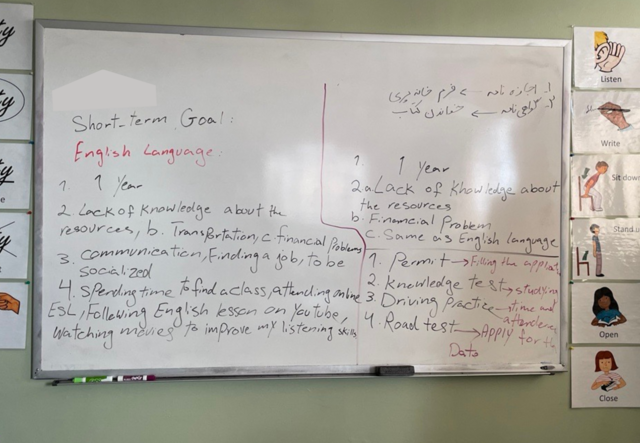 Short-term Goal:
English Language:
1. 1 Year
2. Lack of Knowledge about the
resources, b. Transportation, c financial problems
3. communication, Finding a job, to be
socialized
4. Spending time to find a class, attending online
ESL, Following English lesson on YouTube,
Watching movies to improve my listening skills
۱. اجازه نامه ← فرم خانه پری
۲. گواهی نامه ← خواندن کتاب
1. 1 Year
2. a Lack of Knowledge about
the resources
b. Financial Problem
c. Same as English language
1. Permit → Filling the applicat
2. Knowledge test → studying
3. Driving practice → time and
attendence
4. Road test → Apply for th
Date
Listen
Write
Sit down
Stand u
Open
Close